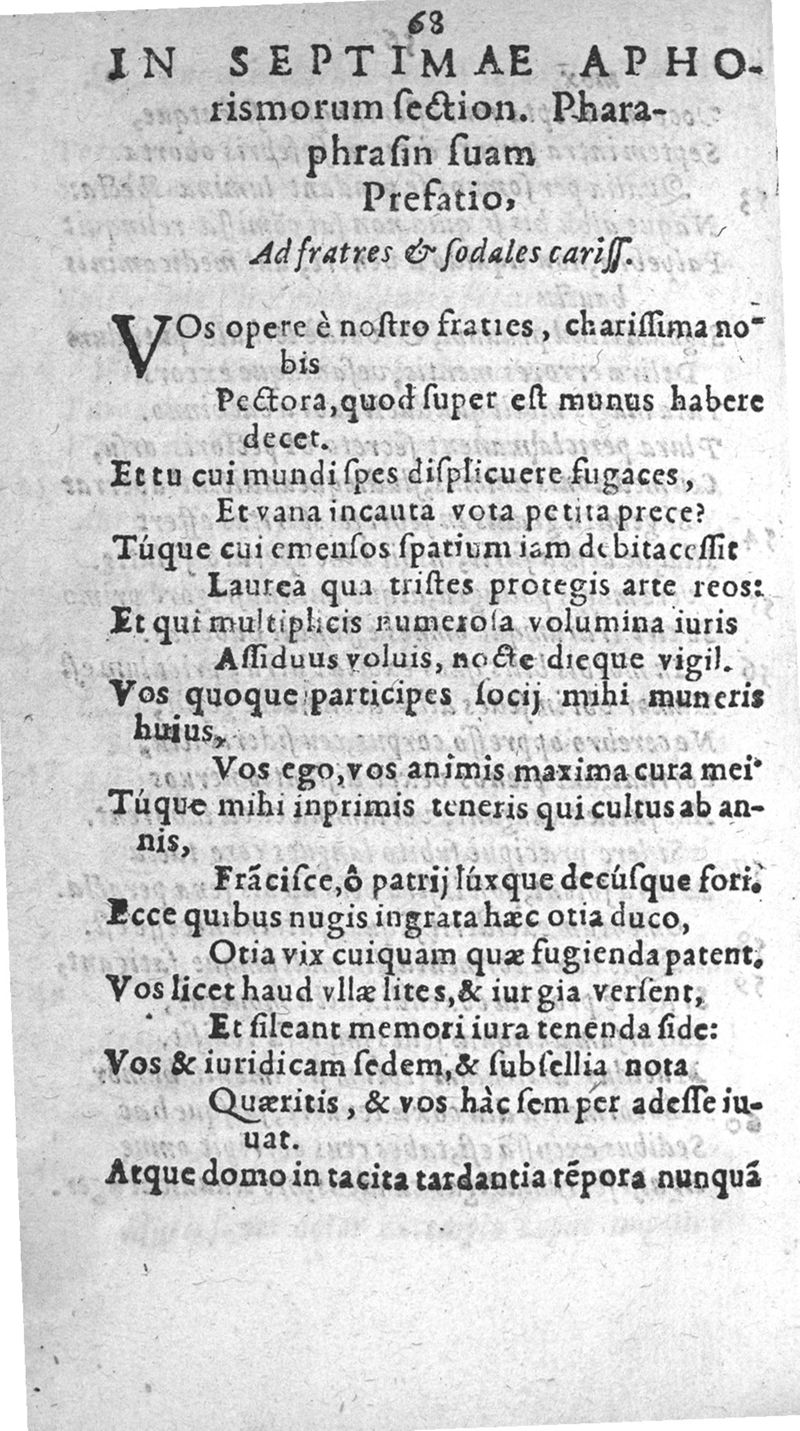 68
IN SEPTIMAE APHO-
rismorum ſection. Phara-
phraſin ſuam
Prefatio,
Ad fratres & ſodales cariſſ.
VOs opere è noſtro fratres, chariſſima no-
bis
Pectora, quod ſuper eſt munus habere
decet.
Et tu cui mundi ſpes diſplicuere fugaces,
Et vana incauta vota petita prece?
Túque cui emenſos ſpatium iam debita ceſſit
Laurea qua triſtes protegis arte reos:
Et qui multiplicis numeroſa volumina iuris
Aſſiduus voluis, nocte dieque vigil.
Vos quoque participes ſocij mihi muneris
huius,
Vos ego, vos animis maxima cura mei
Túque mihi inprimis teneris qui cultus ab an-
nis,
Frãciſce, ô patrij lúxque decúſque fori.
Ecce quibus nugis ingrata hæc otia duco,
Otia vix cuiquam quæ fugienda patent.
Vos licet haud vllæ lites, & iurgia verſent,
Et ſileant memori iura tenenda fide:
Vos & iuridicam ſedem, & ſubſellia nota
Quæritis, & vos hàc ſemper adeſſe iu-
uat.
Atque domo in tacita tardantia tẽpora nunquã